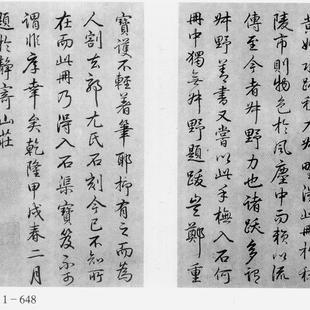 陵市則物色於風塵中而賴以流
傳至今者叔野力也諸跋多謂
叔野善書又嘗以此手橅入石何
冊中獨無叔野題跋豈鄭重
寶護不輕著筆耶抑有之而為
人割去郭尤氏石刻今已不知所
在而此冊乃得入石渠寶笈不可
謂非厚幸矣乾隆甲戌春二月
題於靜寄山莊
1－648